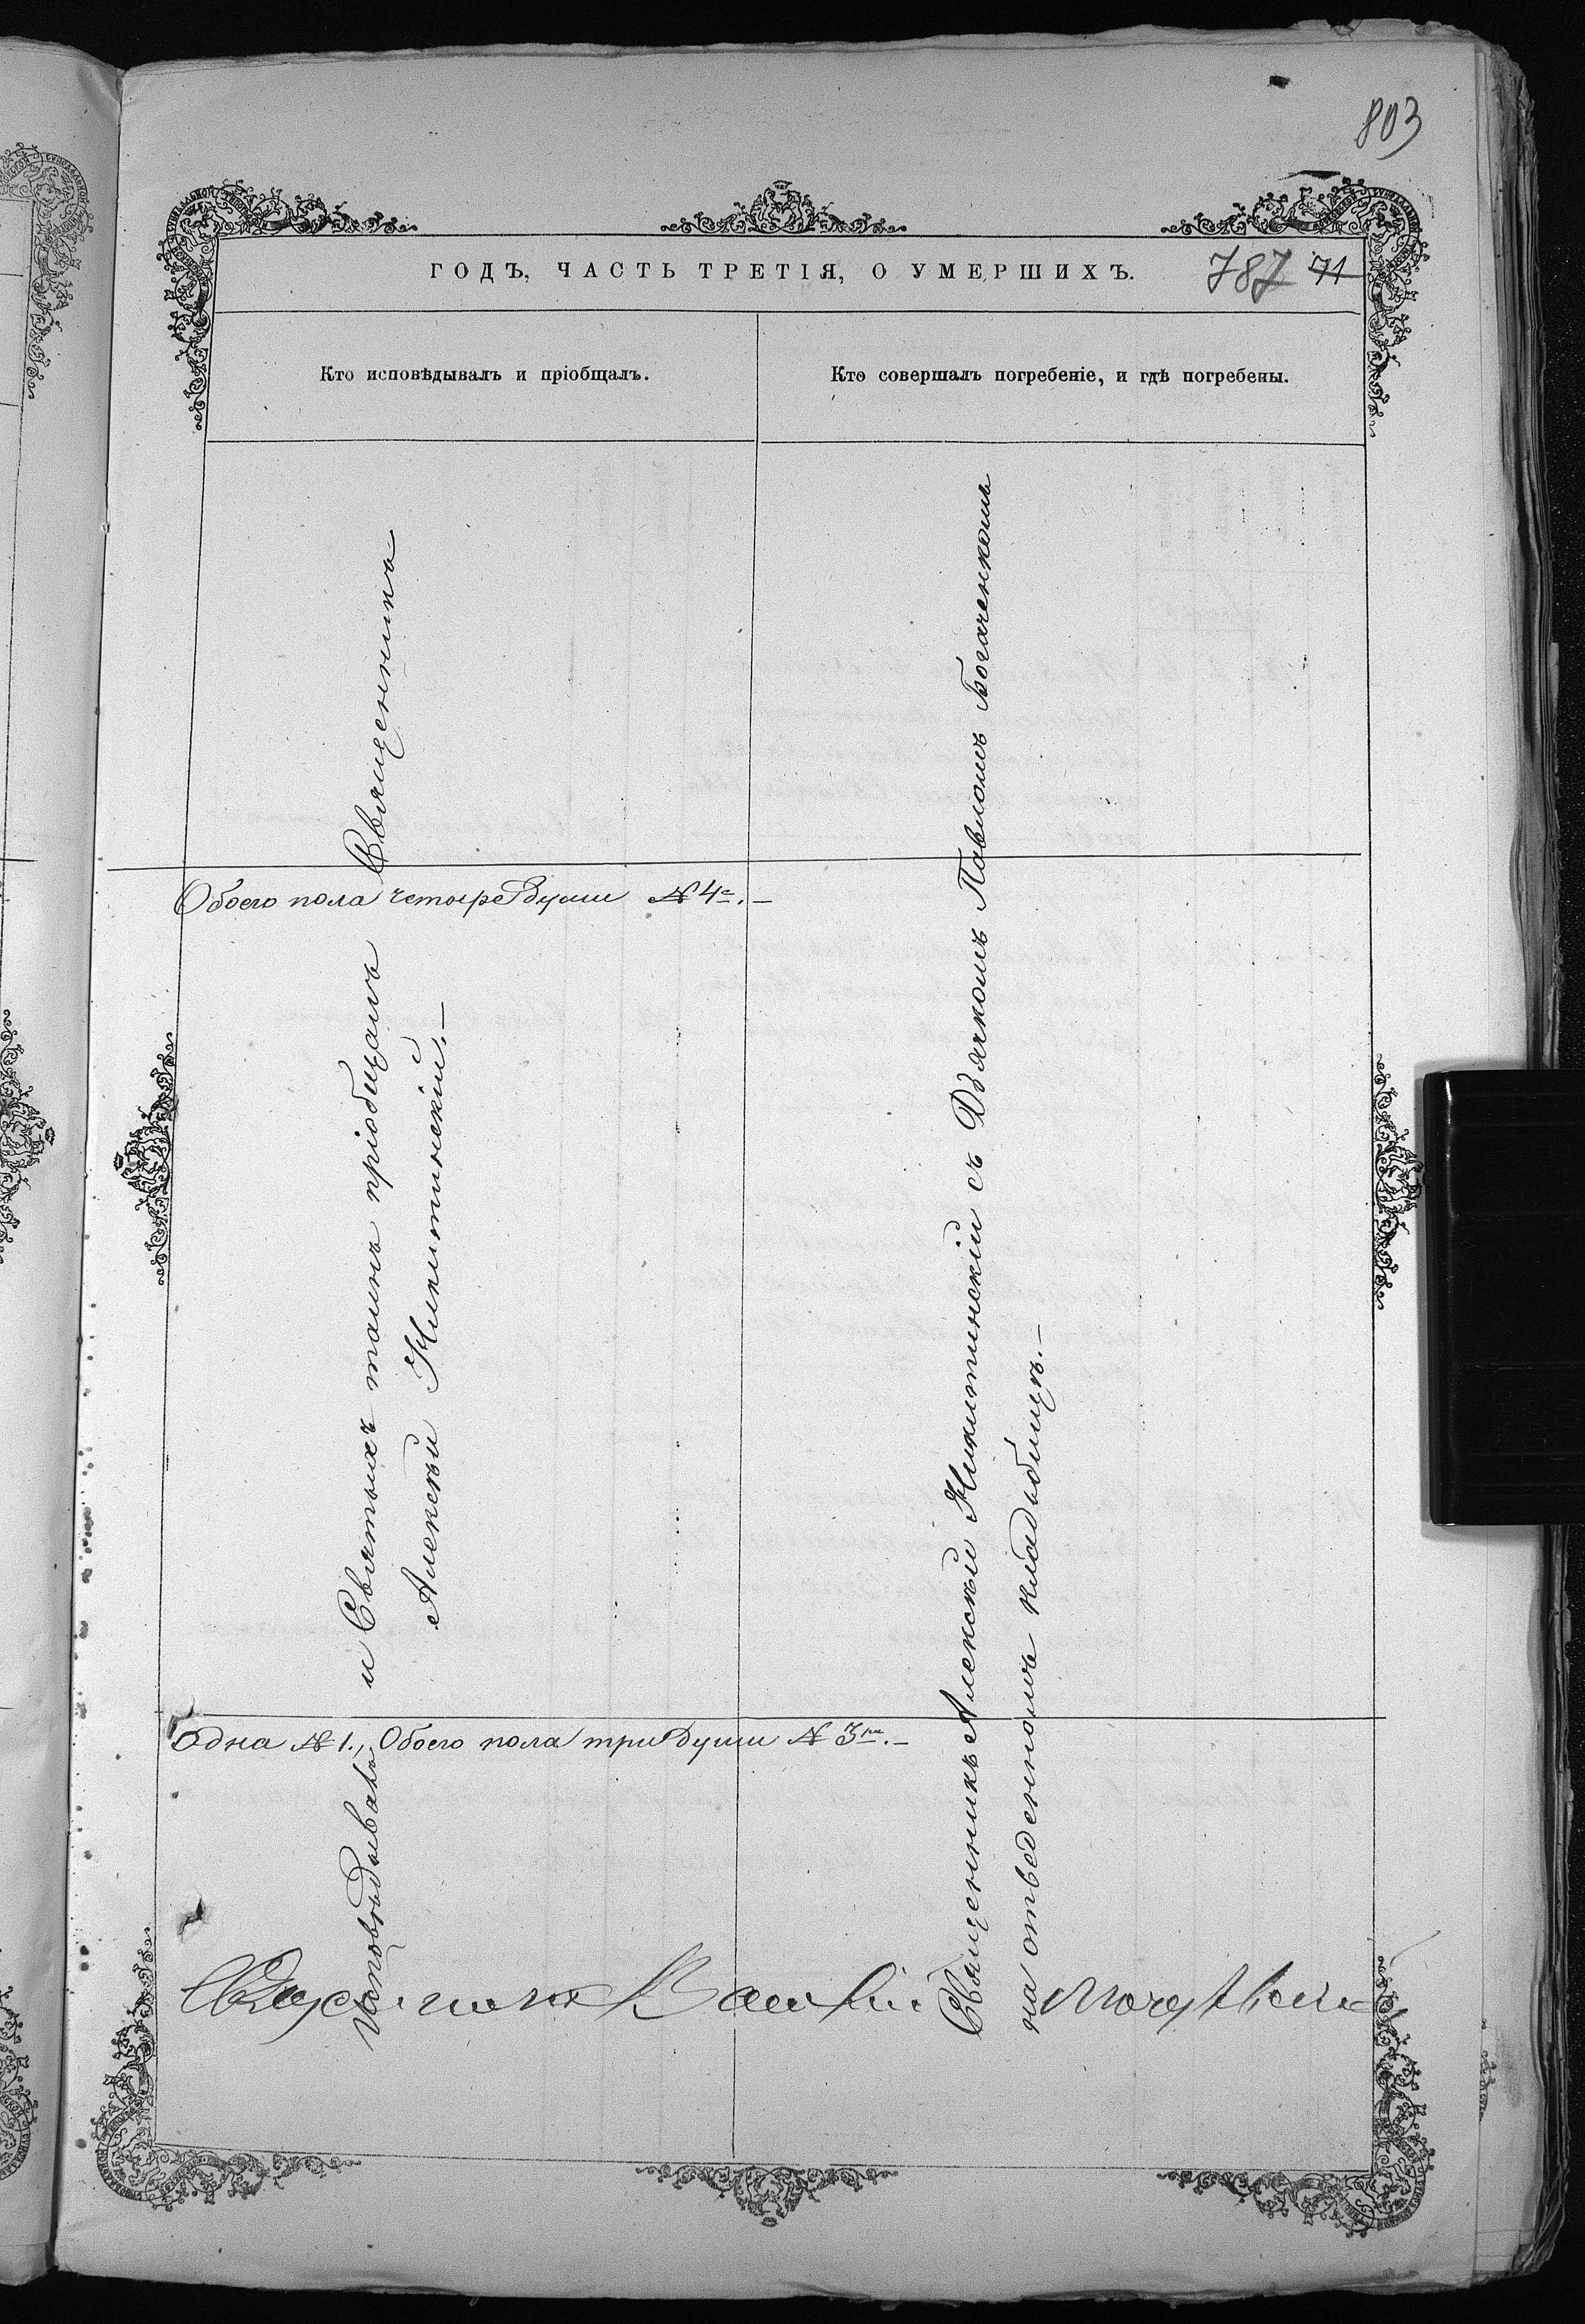 803
ГОДЪ, ЧАСТЬ ТРЕТІЯ, О УМЕРШИХЪ.
787 71
Кто исповѣдывалъ и пріобщалъ.
Кто совершалъ погребеніе, и гдѣ погребены.
Исповѣдывалъ и Святыхъ таинъ пріобщалъ Священникъ
Алексѣй Никитинскій. —
Священникъ Алексѣй Никитинскій съ Дьячкомъ Павломъ Богаченкомъ
на отведенномъ кладбищѣ. —
Обоего пола четыре души № 4е. —
Одна № 1., Обоего пола три души № 3и. —
Священникъ